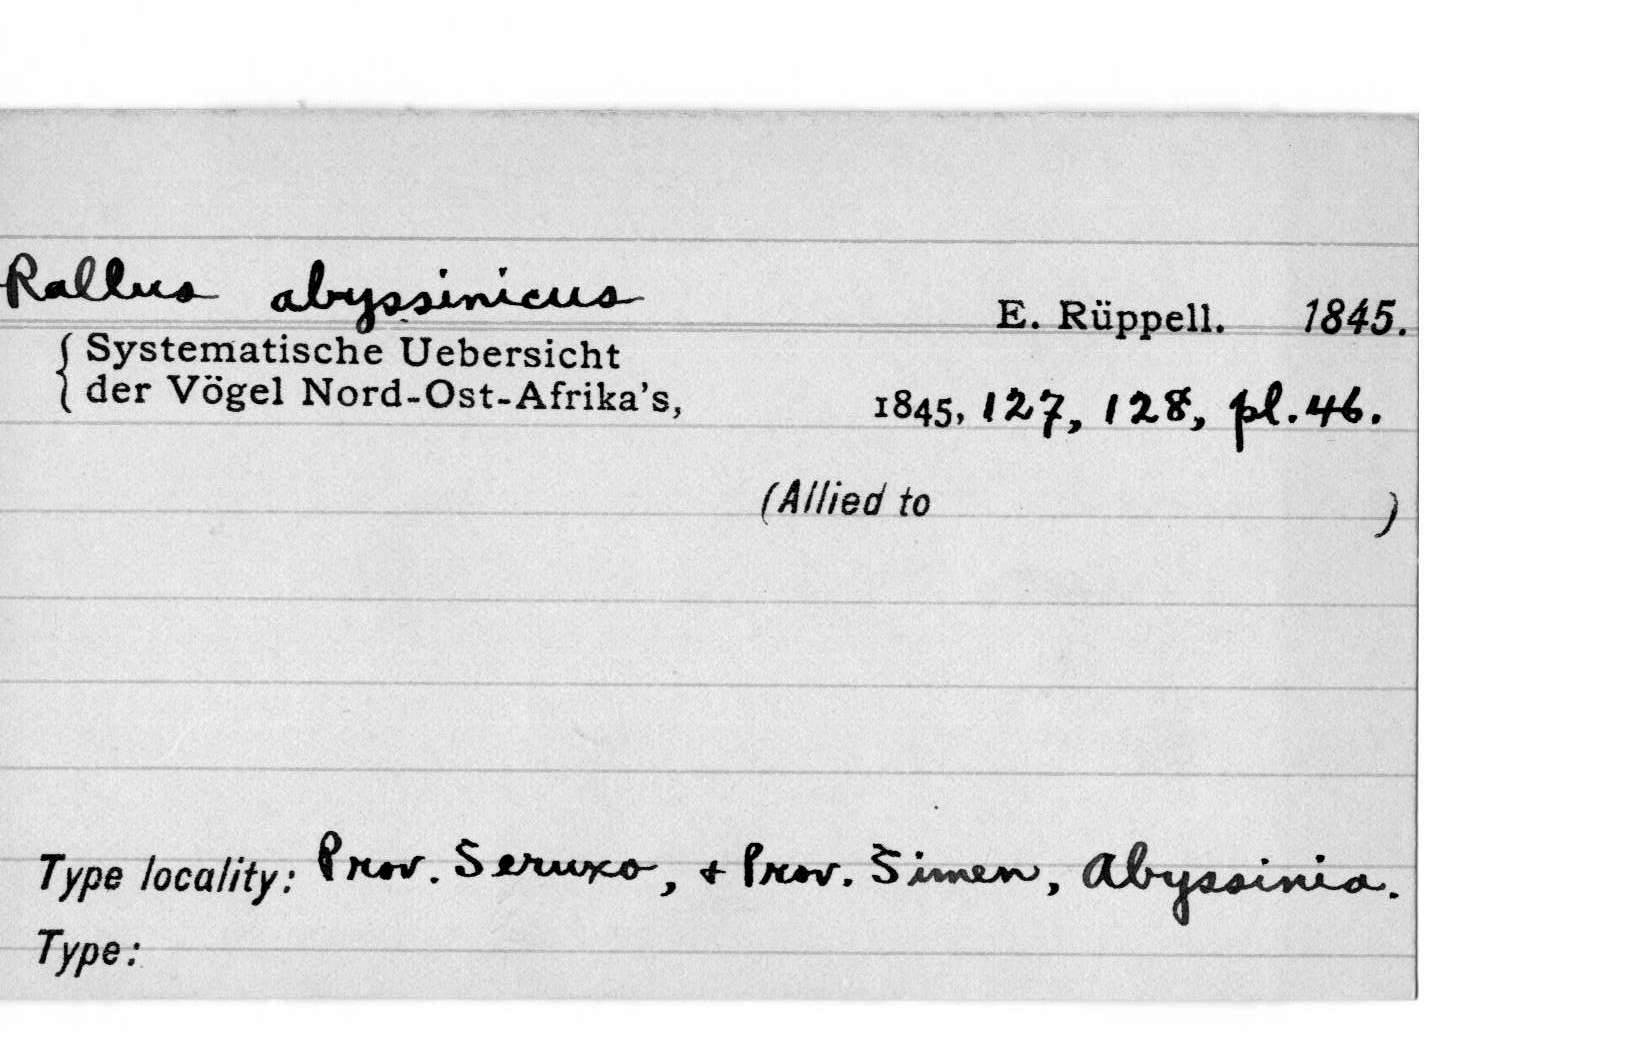 Rallus abyssinicus
E. Rüppell. 1845.
Systematische Uebersicht
der Vögel Nord-Ost-Afrika's,
1845, 127, 128, pl. 46.
(Allied to )
Type locality: Prov. Seruxo, + Prov. Simen, Abyssinia.
Type: